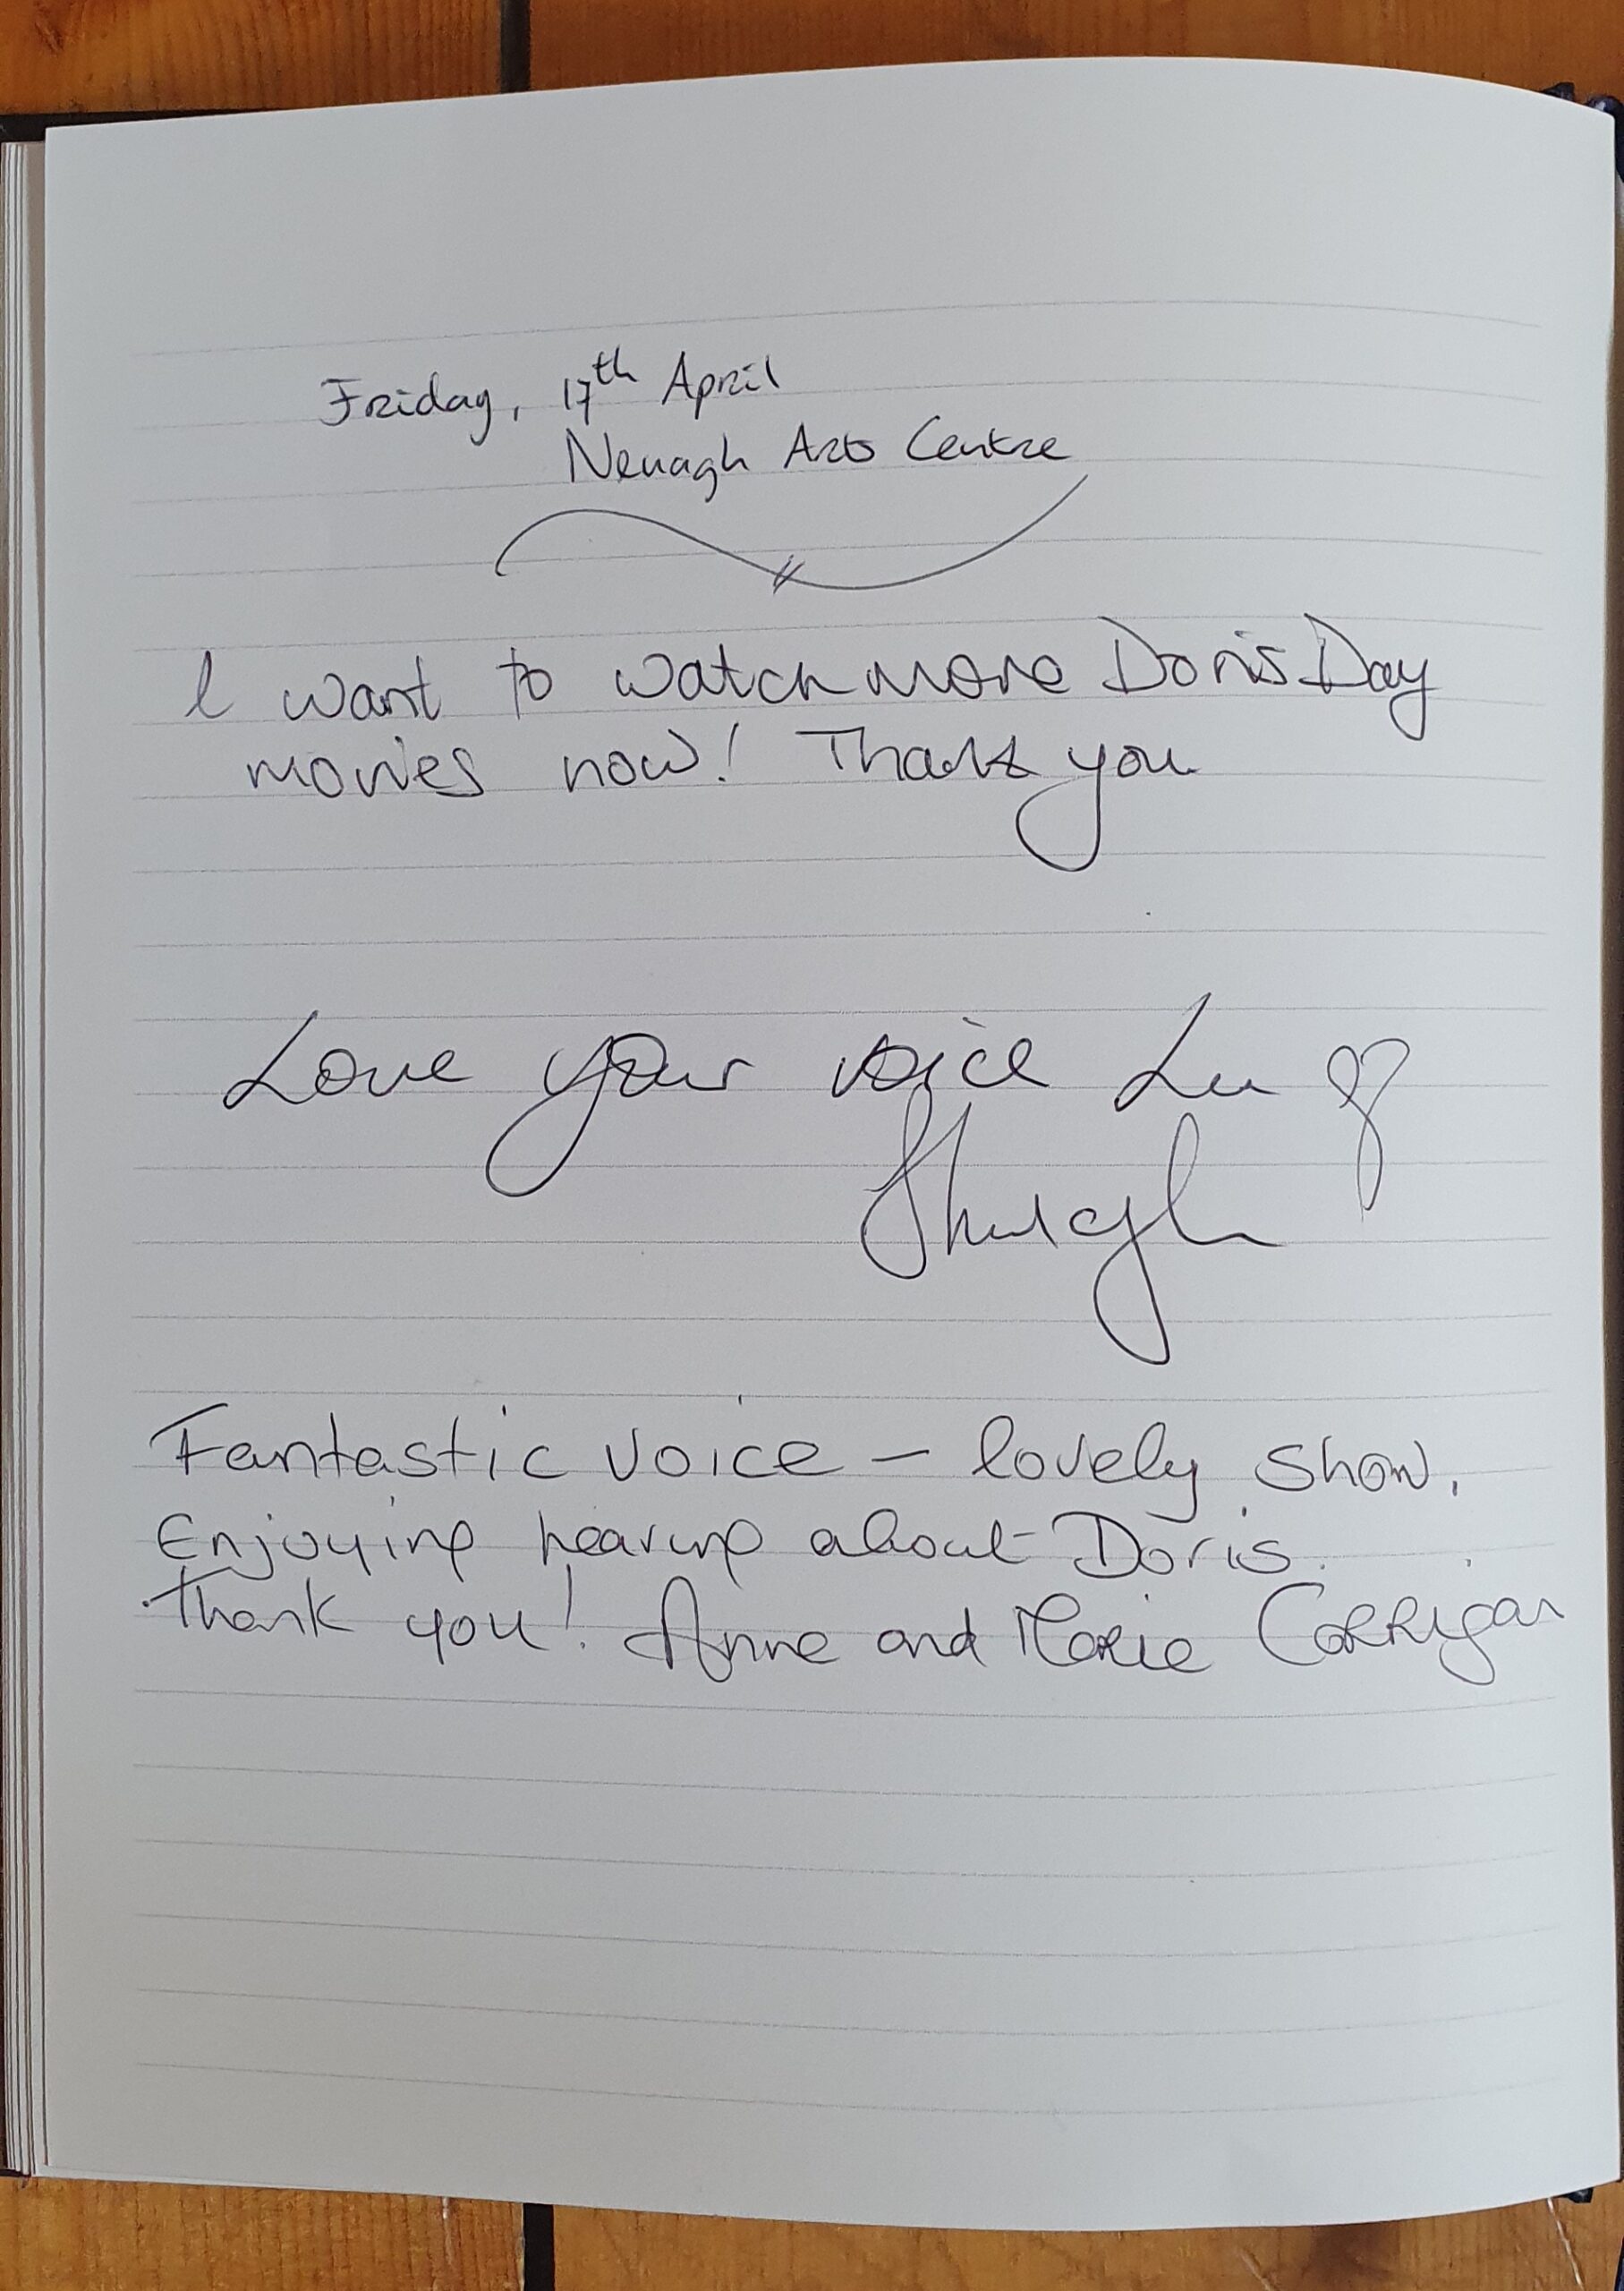 Friday, 17th April
Nenagh Arts Centre
I want to watch more Doris Day
movies now! Thank you
Love your voice Lu ♡
Fantastic voice – lovely show.
Enjoying hearing about Doris.
Thank you! Anne and Marie Corrigan